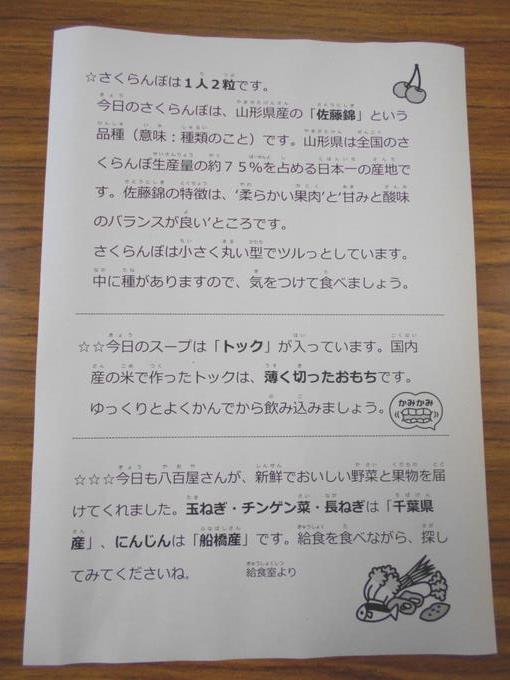 ☆さくらんぼは１人２粒です。
今日のさくらんぼは、山形県産の「佐藤錦」という
品種（意味：種類のこと）です。山形県は全国のさ
くらんぼ生産量の約７５％を占める日本一の産地で
す。佐藤錦の特徴は、‘柔らかい果肉’と‘甘みと酸味
のバランスが良い’ところです。
さくらんぼは小さく丸い型でツルっとしています。
中に種がありますので、気をつけて食べましょう。
☆☆今日のスープは「トック」が入っています。国内
産の米で作ったトックは、薄く切ったおもちです。
ゆっくりとよくかんでから飲み込みましょう。
かみかみ
☆☆☆今日も八百屋さんが、新鮮でおいしい野菜と果物を届
けてくれました。玉ねぎ・チンゲン菜・長ねぎは「千葉県
産」、にんじんは「船橋産」です。給食を食べながら、探し
てみてくださいね。　給食室より